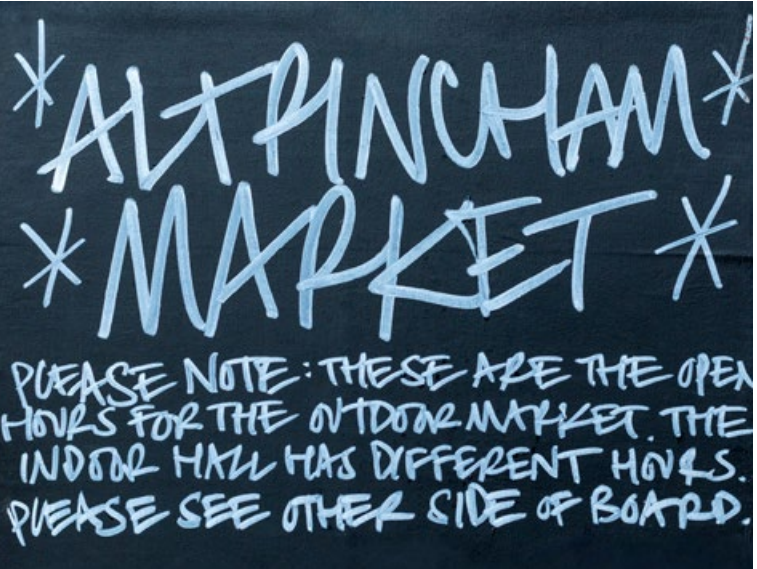 *ALTRINCHAM*
*MARKET*
PLEASE NOTE: THESE ARE THE OPEN
HOURS FOR THE OUTDOOR MARKET. THE
INDOOR HALL HAS DIFFERENT HOURS.
PLEASE SEE OTHER SIDE OF BOARD.